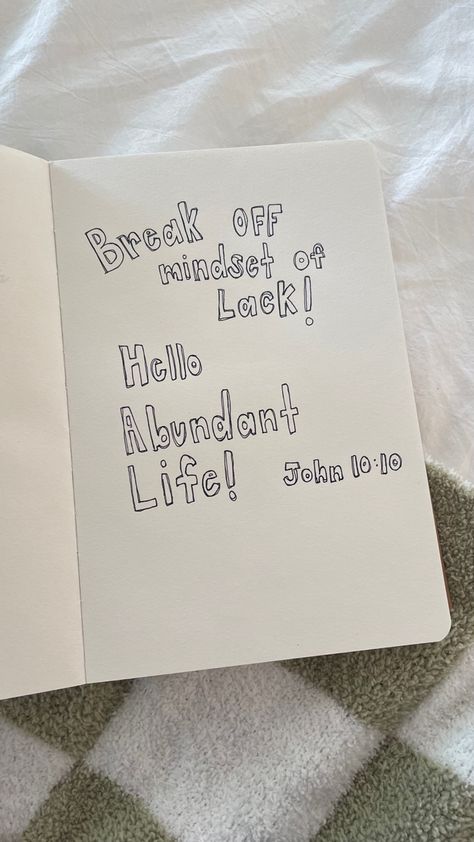 Break OFF
mindset of
Lack!
Hello
Abundant
Life! John 10:10